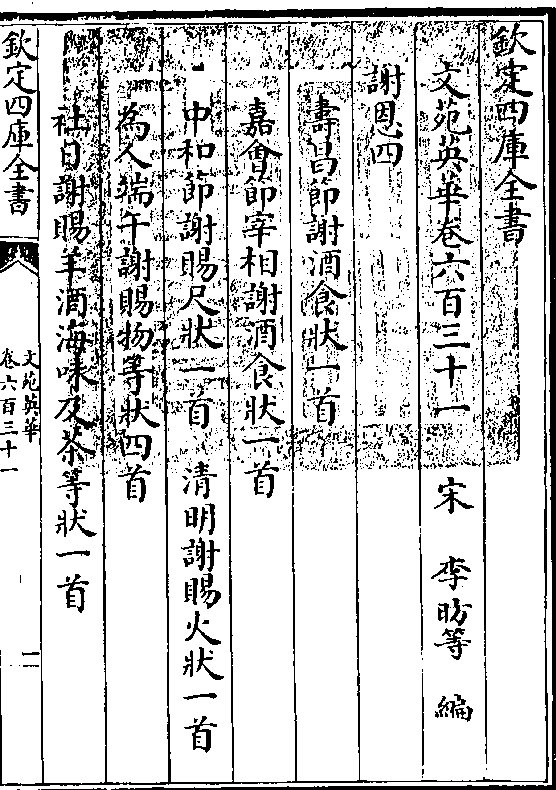 欽定四庫全書
文苑英華卷六百三十一 宋 李昉等 編
謝恩四
壽昌節謝酒食狀一首
嘉會節宰相謝酒食狀一首
中和節謝賜尺狀一首 清明謝賜火狀一首
為人端午謝賜物等狀四首
社日謝賜羊酒海味及茶等狀一首
欽定四庫全書
文苑英華
卷六百三十一